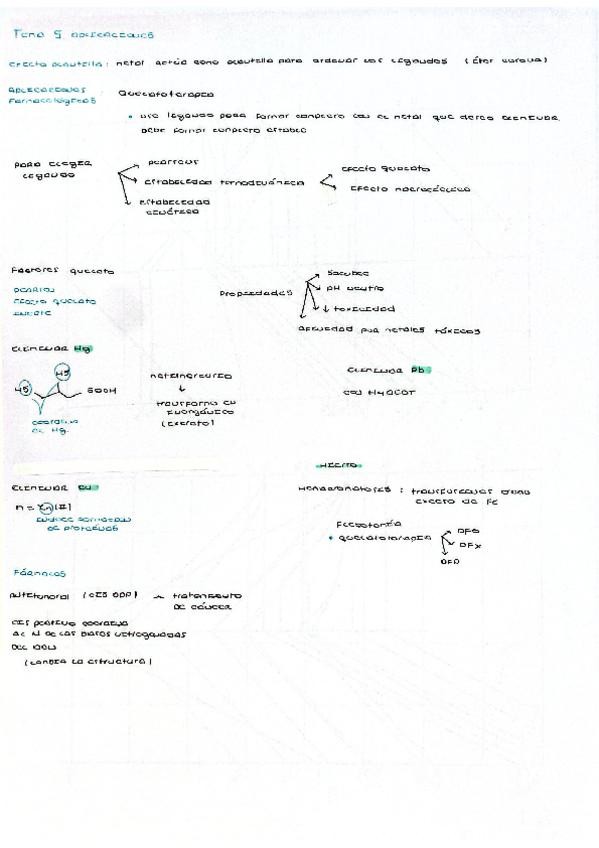 Tema 5 aplicaciones
Efecto plantilla: metal actúa como plantilla para ordenar los ligandos (Éter corona)
Aplicaciones Quelatoterapia
farmacológicas:
• Uso ligando para formar complejo con el metal que deseo eliminar
Debe formar complejo estable
Para elegir
ligando
Estabilidad termodinámica
Efecto quelato
Efecto macrocíclico
Estabilidad
cinética
Factores quelato
Efecto quelato
Propiedades
pH neutro
↓ toxicidad
Afinidad por metales tóxicos
Eliminar Hg
HS
HS
COOH
Metilmercurio
↓
transformo en
inorgánico
Eliminar Pb
con H4DCOT
Eliminar Cu
Hierro
Hemocromatosis: transfusiones
exceso de Fe
de proteínas
Flebotomía
• Quelatoterapia
DFO
DFX
DFP
Fármacos
Antitumoral (cis DDP) → tratamiento
de cáncer
Cis platino coordina
al N de las bases nitrogenadas
del ADN
(cambia la estructura)